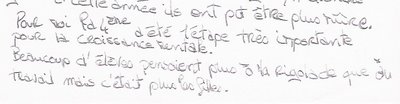 cette année ils ont pu être plus mûre.
Pour moi la
a été l'étape très importante
pour la croissance mentale.
Beaucoup d'élèves pensaient plus à la rigolade que du
travail mais c'était plus les filles.